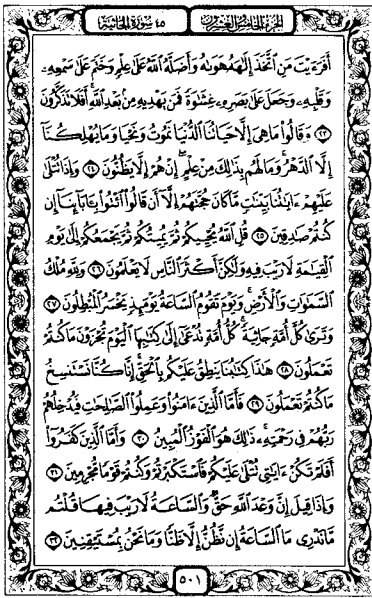 الجزء الخامس والعشرون ٤٥ سورة الجاثية
أَفَرَءَيْتَ مَنِ ٱتَّخَذَ إِلَٰهَهُۥ هَوَىٰهُ وَأَضَلَّهُ ٱللَّهُ عَلَىٰ عِلْمٍ وَخَتَمَ عَلَىٰ سَمْعِهِۦ
وَقَلْبِهِۦ وَجَعَلَ عَلَىٰ بَصَرِهِۦ غِشَٰوَةً فَمَن يَهْدِيهِ مِنۢ بَعْدِ ٱللَّهِ ۚ أَفَلَا تَذَكَّرُونَ
٢٣ وَقَالُوا۟ مَا هِىَ إِلَّا حَيَاتُنَا ٱلدُّنْيَا نَمُوتُ وَنَحْيَا وَمَا يُهْلِكُنَآ
إِلَّا ٱلدَّهْرُ ۚ وَمَا لَهُم بِذَٰلِكَ مِنْ عِلْمٍ ۖ إِنْ هُمْ إِلَّا يَظُنُّونَ ٢٤ وَإِذَا تُتْلَىٰ
عَلَيْهِمْ ءَايَٰتُنَا بَيِّنَٰتٍ مَّا كَانَ حُجَّتَهُمْ إِلَّآ أَن قَالُوا۟ ٱئْتُوا۟ بِـَٔابَآئِنَآ إِن
كُنتُمْ صَٰدِقِينَ ٢٥ قُلِ ٱللَّهُ يُحْيِيكُمْ ثُمَّ يُمِيتُكُمْ ثُمَّ يَجْمَعُكُمْ إِلَىٰ يَوْمِ
ٱلْقِيَٰمَةِ لَا رَيْبَ فِيهِ وَلَٰكِنَّ أَكْثَرَ ٱلنَّاسِ لَا يَعْلَمُونَ ٢٦ وَلِلَّهِ مُلْكُ
ٱلسَّمَٰوَٰتِ وَٱلْأَرْضِ ۚ وَيَوْمَ تَقُومُ ٱلسَّاعَةُ يَوْمَئِذٍ يَخْسَرُ ٱلْمُبْطِلُونَ ٢٧
وَتَرَىٰ كُلَّ أُمَّةٍ جَاثِيَةً ۚ كُلُّ أُمَّةٍ تُدْعَىٰٓ إِلَىٰ كِتَٰبِهَا ٱلْيَوْمَ تُجْزَوْنَ مَا كُنتُمْ
تَعْمَلُونَ ٢٨ هَٰذَا كِتَٰبُنَا يَنطِقُ عَلَيْكُم بِٱلْحَقِّ ۚ إِنَّا كُنَّا نَسْتَنسِخُ
مَا كُنتُمْ تَعْمَلُونَ ٢٩ فَأَمَّا ٱلَّذِينَ ءَامَنُوا۟ وَعَمِلُوا۟ ٱلصَّٰلِحَٰتِ فَيُدْخِلُهُمْ
رَبُّهُمْ فِى رَحْمَتِهِۦ ۚ ذَٰلِكَ هُوَ ٱلْفَوْزُ ٱلْمُبِينُ ٣٠ وَأَمَّا ٱلَّذِينَ كَفَرُوٓا۟
أَفَلَمْ تَكُنْ ءَايَٰتِى تُتْلَىٰ عَلَيْكُمْ فَٱسْتَكْبَرْتُمْ وَكُنتُمْ قَوْمًا مُّجْرِمِينَ ٣١
وَإِذَا قِيلَ إِنَّ وَعْدَ ٱللَّهِ حَقٌّ وَٱلسَّاعَةُ لَا رَيْبَ فِيهَا قُلْتُم
مَّا نَدْرِى مَا ٱلسَّاعَةُ إِن نَّظُنُّ إِلَّا ظَنًّا وَمَا نَحْنُ بِمُسْتَيْقِنِينَ ٣٢
٥٠١